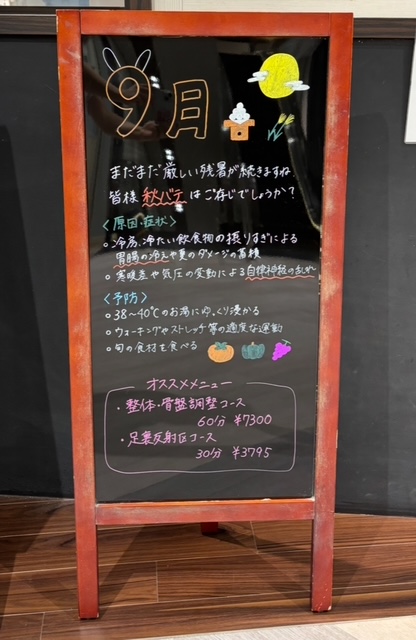 9月
まだまだ厳しい残暑が続きますね
皆様 秋バテ はご存じでしょうか?
〈原因・症状〉
○冷房、冷たい飲食物の摂りすぎによる
胃腸の冷えや夏のダメージの蓄積
○寒暖差や気圧の変動による自律神経の乱れ
〈予防〉
○38～40℃のお湯にゆっくり浸かる
○ウォーキングやストレッチ等の適度な運動
○旬の食材を食べる
オススメメニュー
・整体・骨盤調整コース
60分 ¥7300
・足裏反射区コース
30分 ¥3795